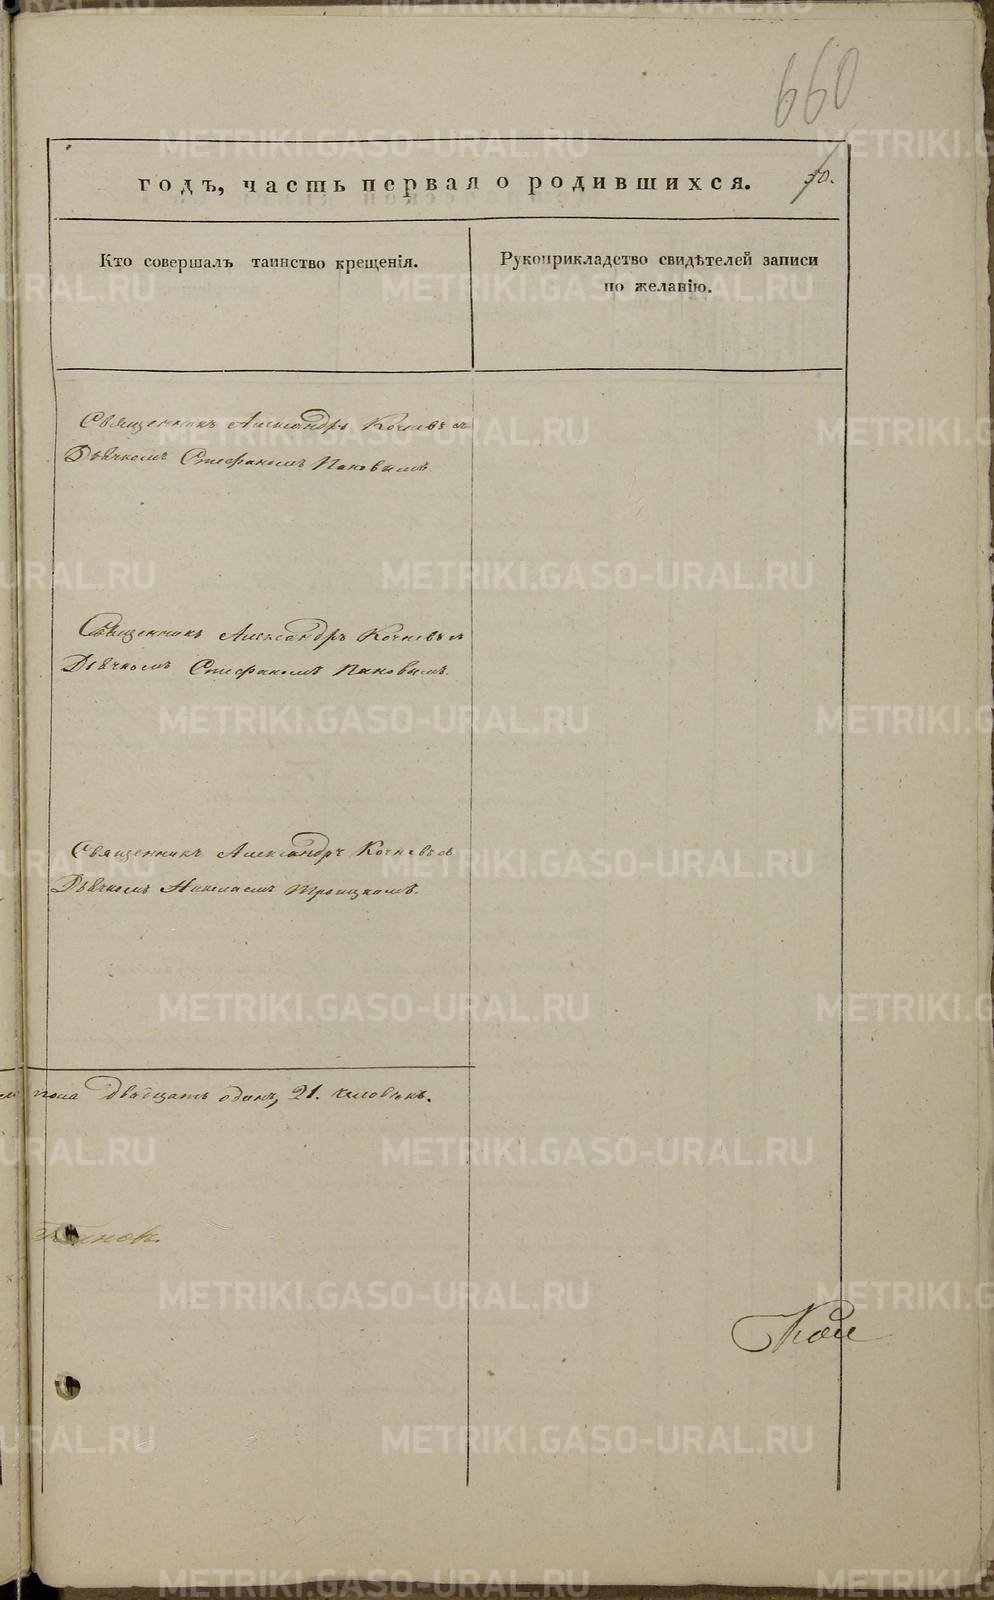 660
годъ, часть первая о родившихся.
30.
Кто совершалъ таинство крещенія.
Рукоприкладство свидѣтелей записи
по желанію.
Священникъ Александръ Кочневъ съ
Дьячкомъ Стефаномъ Пановымъ.
Священникъ Александръ Кочневъ съ
Дьячкомъ Стефаномъ Пановымъ.
Священникъ Александръ Кочневъ съ
Дьячкомъ Николаемъ Троицкомъ.
пола двадцать одинъ, 21. человѣкъ.
METRIKI.GASO-URAL.RU